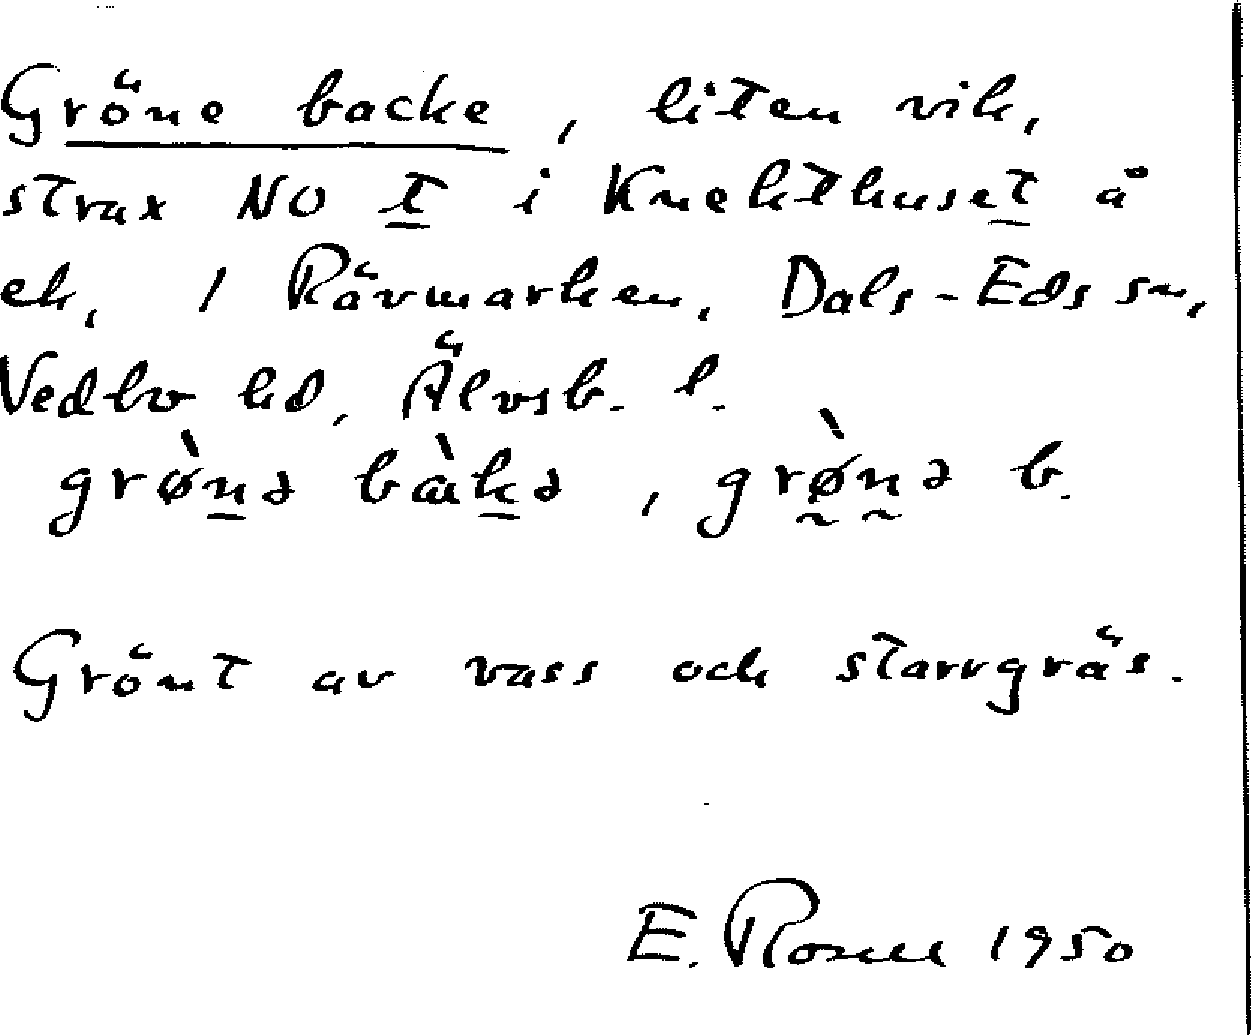 Gröne backe, liten vik,
strax NO t i Knekthuset å
ek, 1 Rävmarken, Dals-Eds sn,
Vedbo hd, Älvsb. l.
grø̀nə bàkə, grø̀nə b.
Grönt av vass och starrgräs.
E. 1950